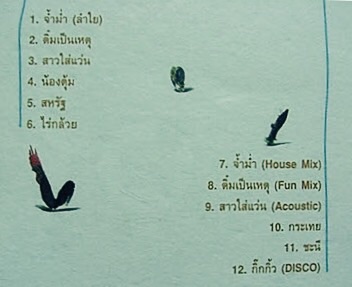 1. จ้ำม่ำ (ลำใย)
2. ดิ้มเป็นเหตุ
3. สาวใส่แว่น
4. น้องตุ้ม
5. สหรัฐ
6. ไร่กล้วย
7. จ้ำม่ำ (House Mix)
8. ดิ้มเป็นเหตุ (Fun Mix)
9. สาวใส่แว่น (Acoustic)
10. กระเทย
11. ชะนี
12. กิ๊กกิ้ว (DISCO)